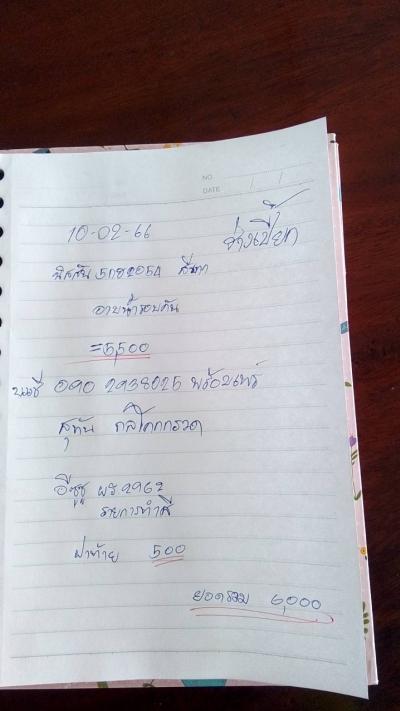 NO.
DATE / /
10-02-66 ช่างเปี๊ยก
นิสสัน สีเทา
อาบน้ำรอบคัน
=5,500
บนชี 090 2938025 พร้อมเพร์
สุทัน
อีซูซุ ผร2962
รายการทำสี
ฝาท้าย 500
ยอดรวม 6,000